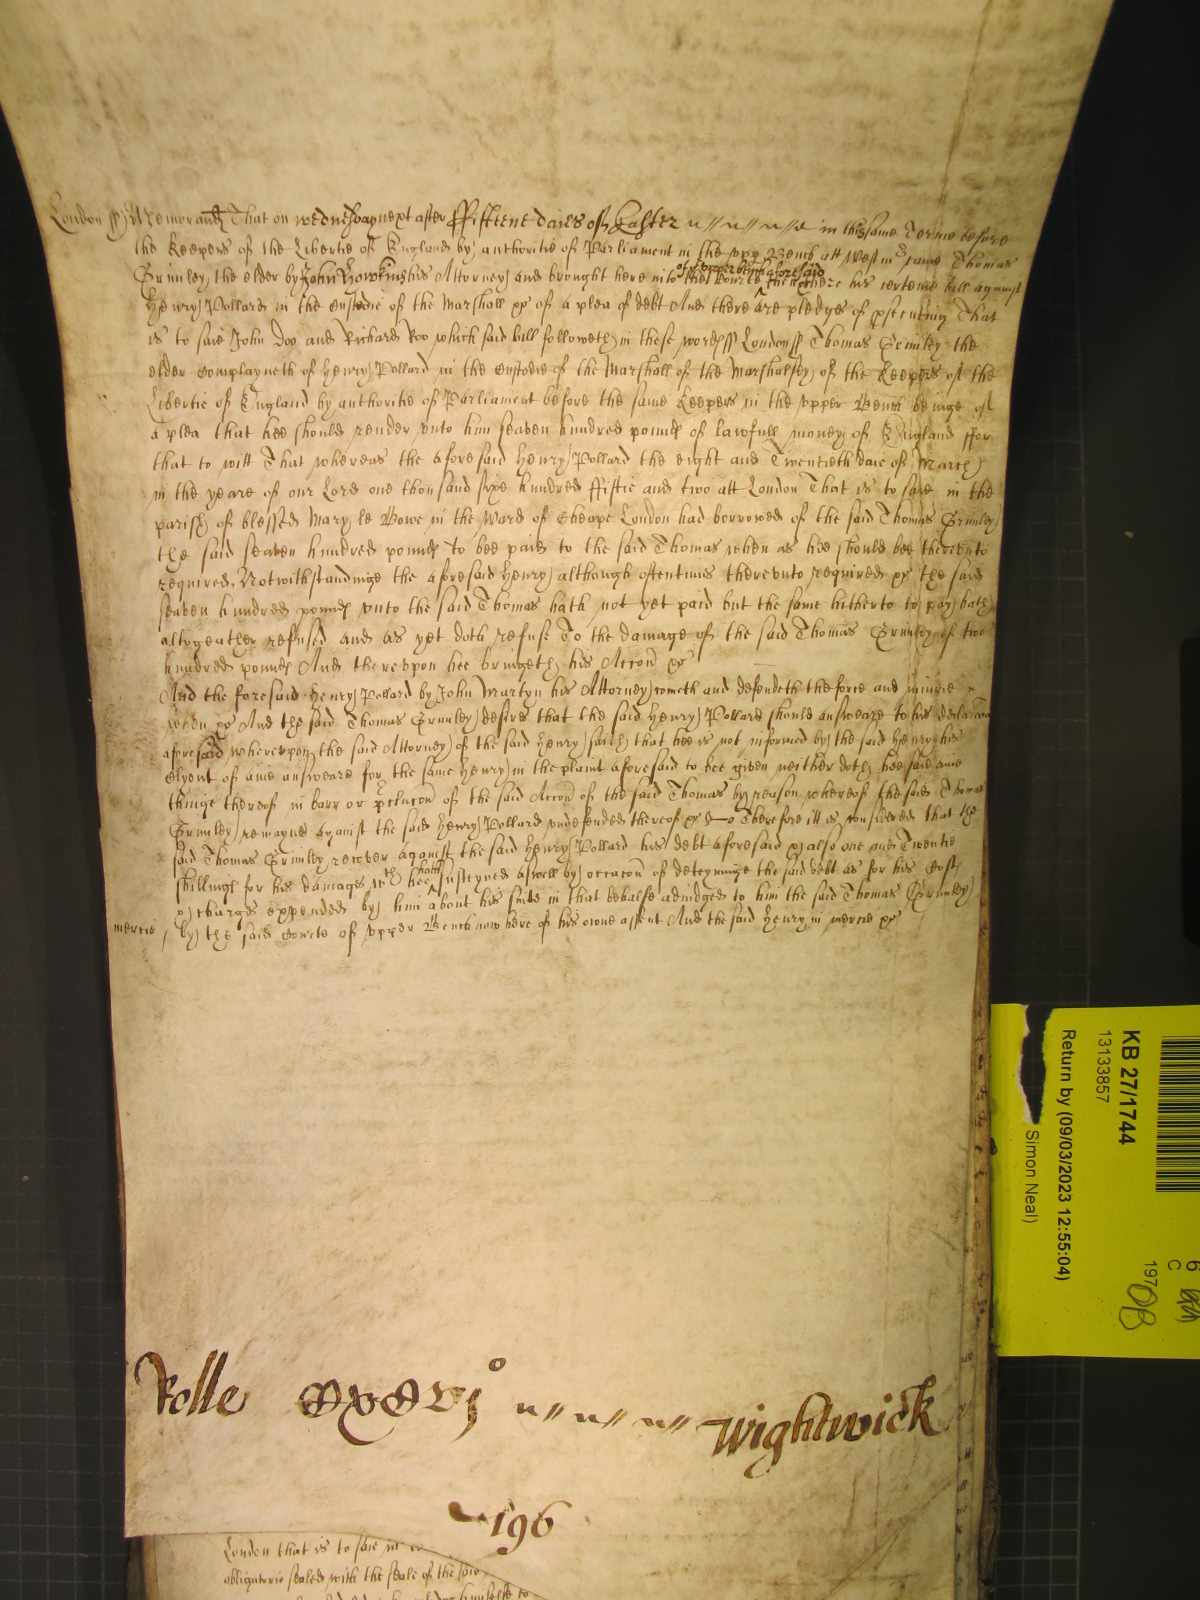 London ss Memorand That on wednesday next after ffifteene daies of Easter in this same Terme before
the Keepers of the Libertie of England by authoritie of Parliament in the vpp Bench att Westm came Thomas
Grimley the elder by John Hawkins his Attorney and brought here into the Courte of vpper bench aforesaid then there his certeine bill against
Henry Pollard in the custodie of the Marshall &c of a plea of debt And there are pledges of psecuting That
is to saie John Doo and Richard Roo which said bill followeth in these words ss London ss Thomas Grimley the
elder complayneth of Henry Pollard in the custodie of the Marshall of the Marshalsey of the Keepers of the
Libertie of England by authoritie of Parliament before the same Keepers in the vpper Bench beinge of
a plea that hee should render vnto him seaven hundred pounds of lawfull money of England ffor
that to witt That whereas the aforesaid Henry Pollard the eight and Twentieth daie of March
in the yeare of our Lord one thousand sixe hundred ffiftie and two att London That is to saie in the
parish of blessed Mary le Bowe in the Ward of Cheape London had borrowed of the said Thomas Grimley
the said seaven hundred pounds To bee paid to the said Thomas when as hee should bee therevnto
required, Notwithstandinge the aforesaid Henry although oftentimes therevnto required &c the said
seaven hundred pounds vnto the said Thomas hath not yet paid but the same hitherto to pay hath
altogeather refused and as yet doth refuse To the damage of the said Thomas Grimley of two
hundred pounds And therevpon hee bringeth his Accon &c
And the foresaid Henry Pollard by John Martyn his Attorney cometh and defendeth the force and iniurie
when &c And the said Thomas Grimley desires that the said Henry Pollard should answeare to his declaracon
aforesaid wherevpon the said Attorney of the said Henry saith that hee is not informed by the said Henry his
Clyent of anie answeare for the same Henry in the plaint aforesaid to bee given neither doth hee saie anie
thinge thereof in barr or pclucon of the said Accon of the said Thomas by reason whereof the said Thomas
Grimley remayns against the said Henry Pollard vndefended thereof &c Therefore itt is considered that the
said Thomas Grimley recover against the said Henry Pollard his debt aforesaid & also one and Twentie
shillings for his damages wch hee hath susteyned aswell by occacon of deteyninge the said debt as for his Costs
& charges expended by him about his suite in that behalfe adiudged to him the said Thomas Grimley
mercie by the said Courte of vpper Bench now here of his owne assent And the said Henry in mercie &c
Rolle CxCvjo Wightwick
196
London that is to saie in
obligatorie sealed with the seale of the said
KB 27/1744
13133857
Return by (09/03/2023 12:55:04)
Simon Neal)
6
C
197